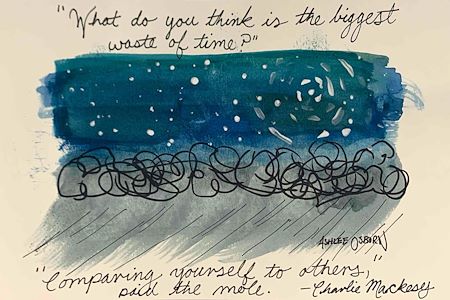 "What do you think is the biggest
waste of time?"
ASHLEE OSBORN
"Comparing yourself to others,"
said the mole. -Charlie Mackesy